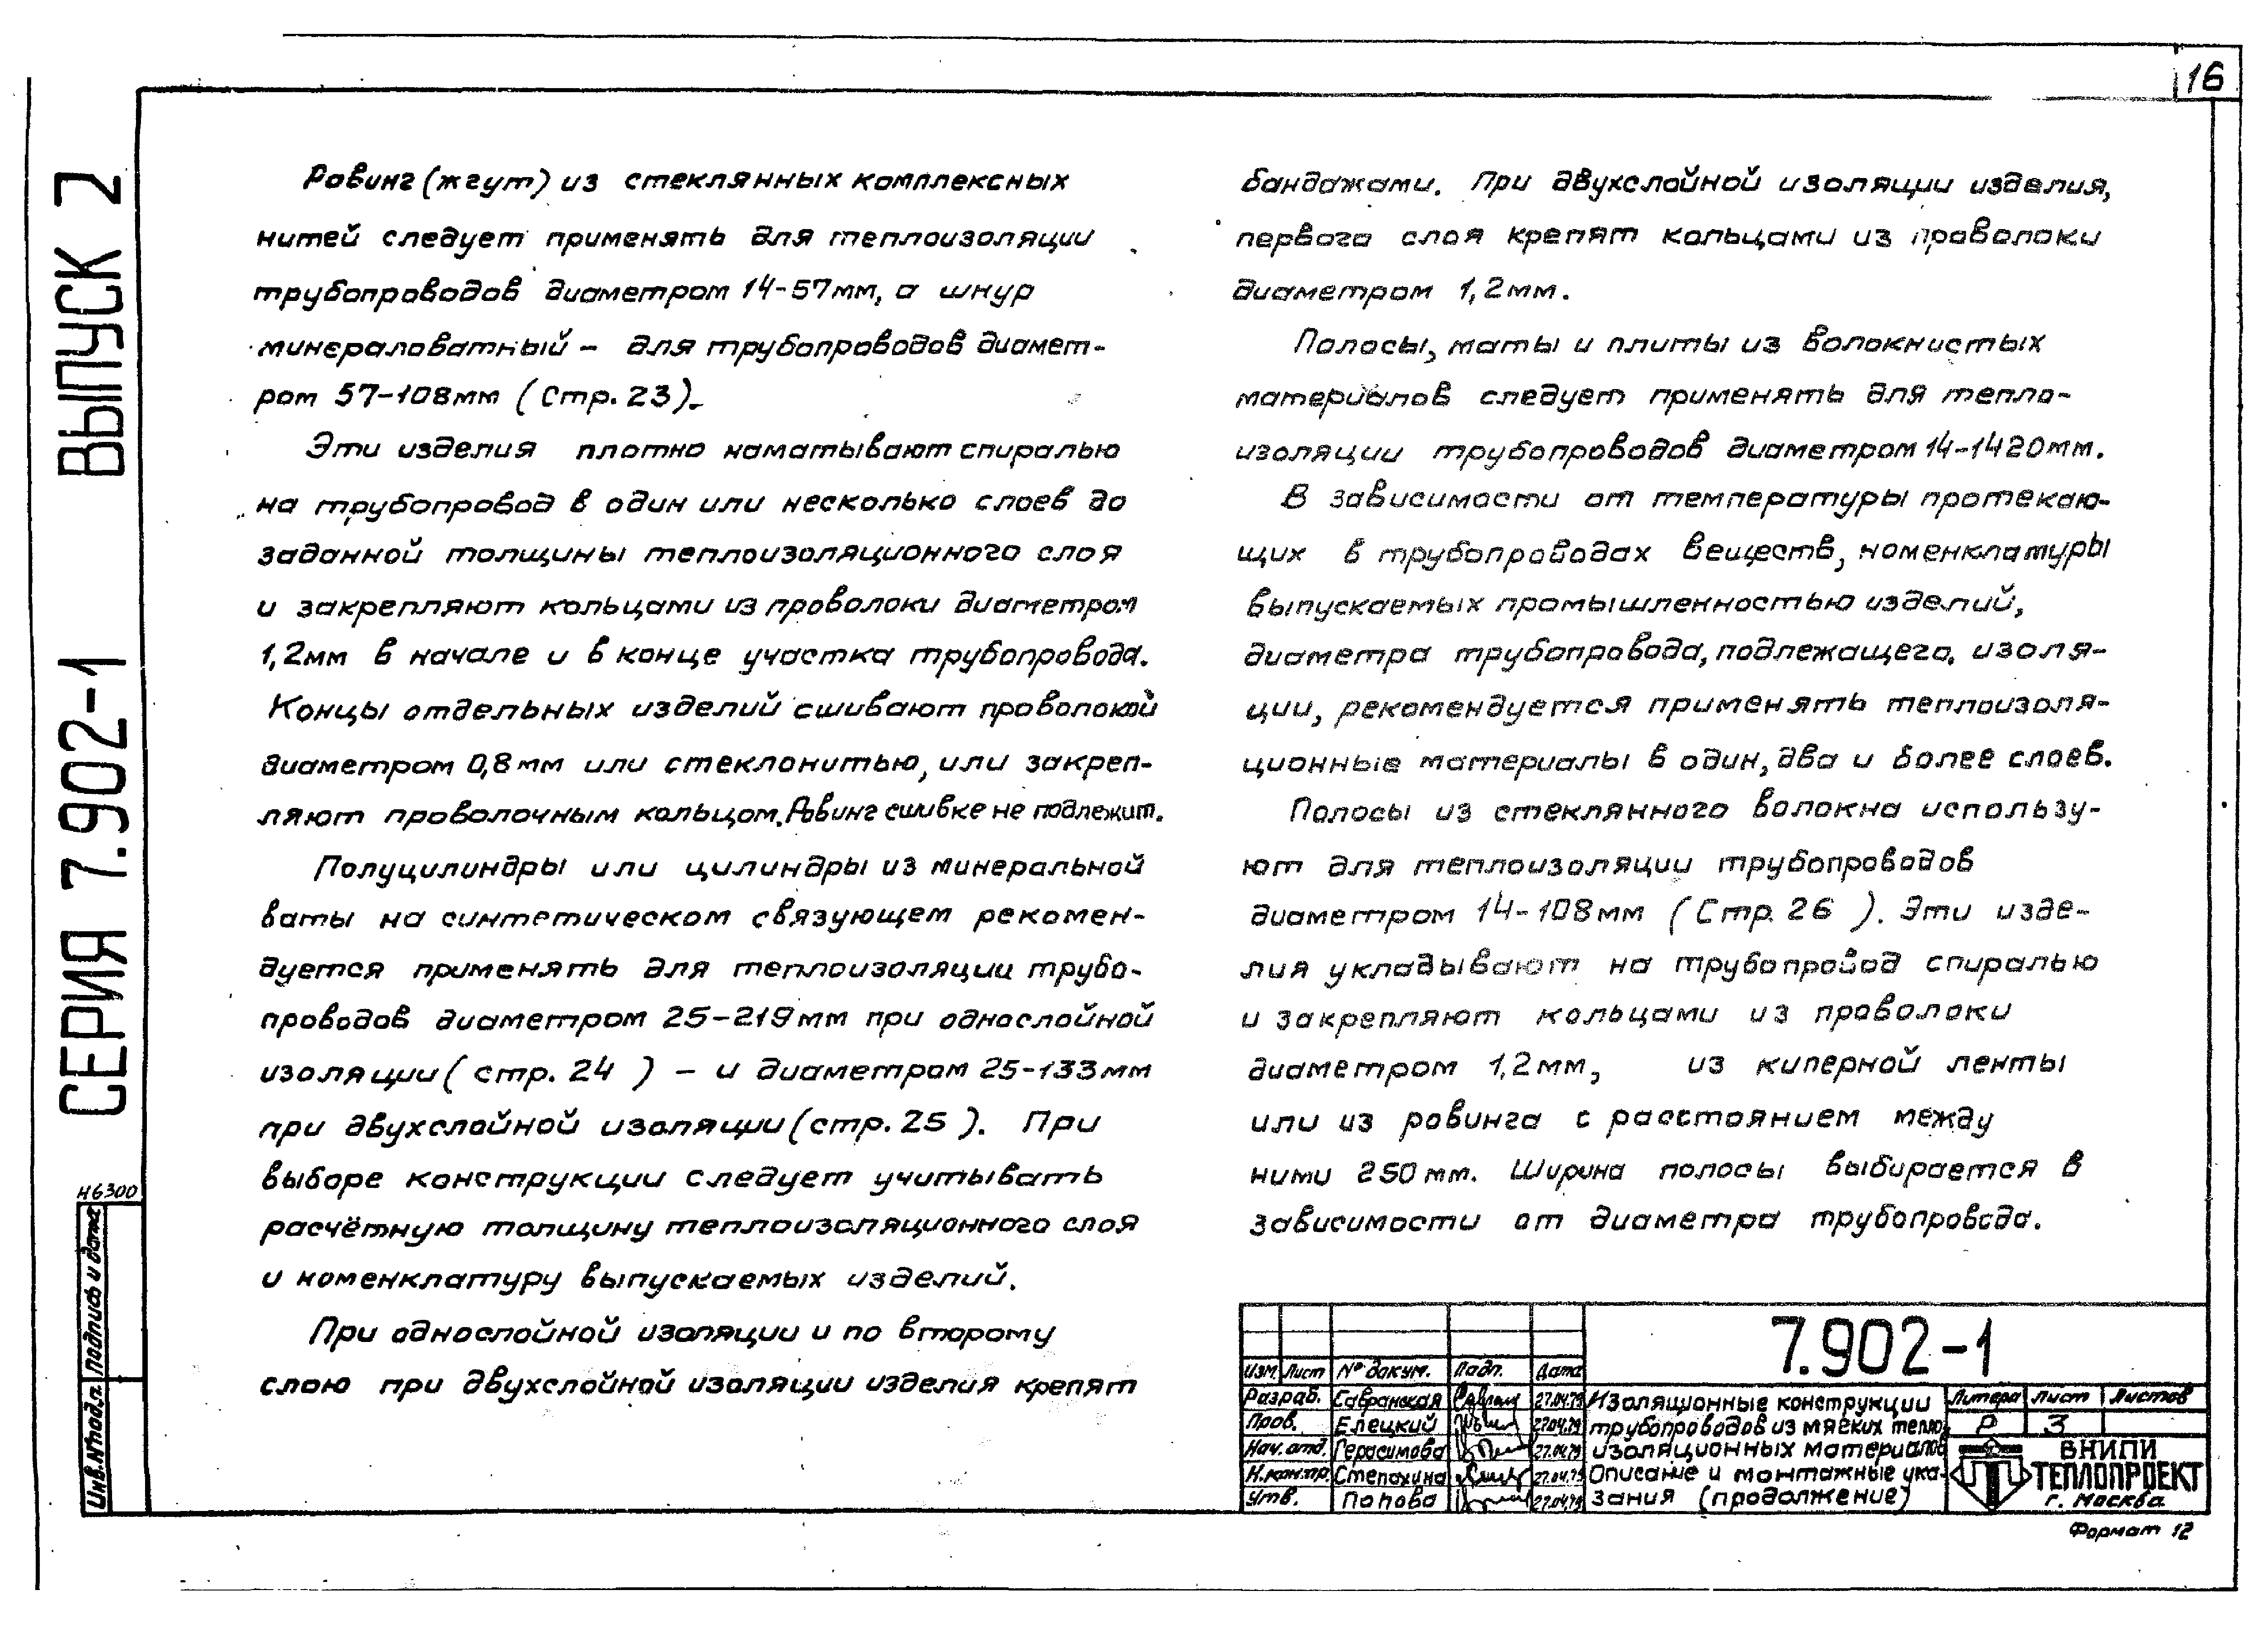 16
СЕРИЯ 7.902-1 ВЫПУСК 2
Ровинг (жгут) из стеклянных комплексных
нитей следует применять для теплоизоляции
трубопроводов диаметром 14-57мм, а шнур
минераловатный – для трубопроводов диамет-
ром 57-108мм (Стр. 23).
Эти изделия плотно наматывают спиралью
на трубопровод в один или несколько слоев до
заданной толщины теплоизоляционного слоя
и закрепляют кольцами из проволоки диаметром
1,2мм в начале и в конце участка трубопровода.
Концы отдельных изделий сшивают проволокой
диаметром 0,8мм или стеклонитью, или закреп-
ляют проволочным кольцом. Ровинг сшивке не подлежит.
Полуцилиндры или цилиндры из минеральной
ваты на синтетическом связующем рекомен-
дуется применять для теплоизоляции трубо-
проводов диаметром 25-219мм при однослойной
изоляции (стр. 24 ) – и диаметром 25-133мм
при двухслойной изоляции (стр. 25 ). При
выборе конструкции следует учитывать
расчётную толщину теплоизоляционного слоя
и номенклатуру выпускаемых изделий.
При однослойной изоляции и по второму
слою при двухслойной изоляции изделия крепят
бандажами. При двухслойной изоляции изделия,
первого слоя крепят кольцами из проволоки
диаметром 1,2мм.
Полосы, маты и плиты из волокнистых
материалов следует применять для тепло-
изоляции трубопроводов диаметром 14-1420мм.
В зависимости от температуры протекаю-
щих в трубопроводах веществ, номенклатуры
выпускаемых промышленностью изделий,
диаметра трубопровода, подлежащего, изоля-
ции, рекомендуется применять теплоизоля-
ционные материалы в один, два и более слоев.
Полосы из стеклянного волокна использу-
ют для теплоизоляции трубопроводов
диаметром 14-108мм (Стр. 26 ). Эти изде-
лия укладывают на трубопровод спиралью
и закрепляют кольцами из проволоки
диаметром 1,2мм, из киперной ленты
или из ровинга с расстоянием между
ними 250мм. Ширина полосы выбирается в
зависимости от диаметра трубопровода.
Н6300
Инв.№подл. Подпись и дата
7.902-1
Изм. Лист № докум. Подп. Дата
Разраб. Савранская 27.04.79
Пров. Елецкий 27.04.79
Нач. отд. Герасимова 27.04.79
Н.контр. Степахина 27.04.79
Утв. Попова 27.04.79
Изоляционные конструкции
трубопроводов из мягких тепло-
изоляционных материалов
Описание и монтажные ука-
зания (продолжение)
Литера Лист Листов
Р 3
ВНИПИ
ТЕПЛОПРОЕКТ
г. Москва
Формат 12